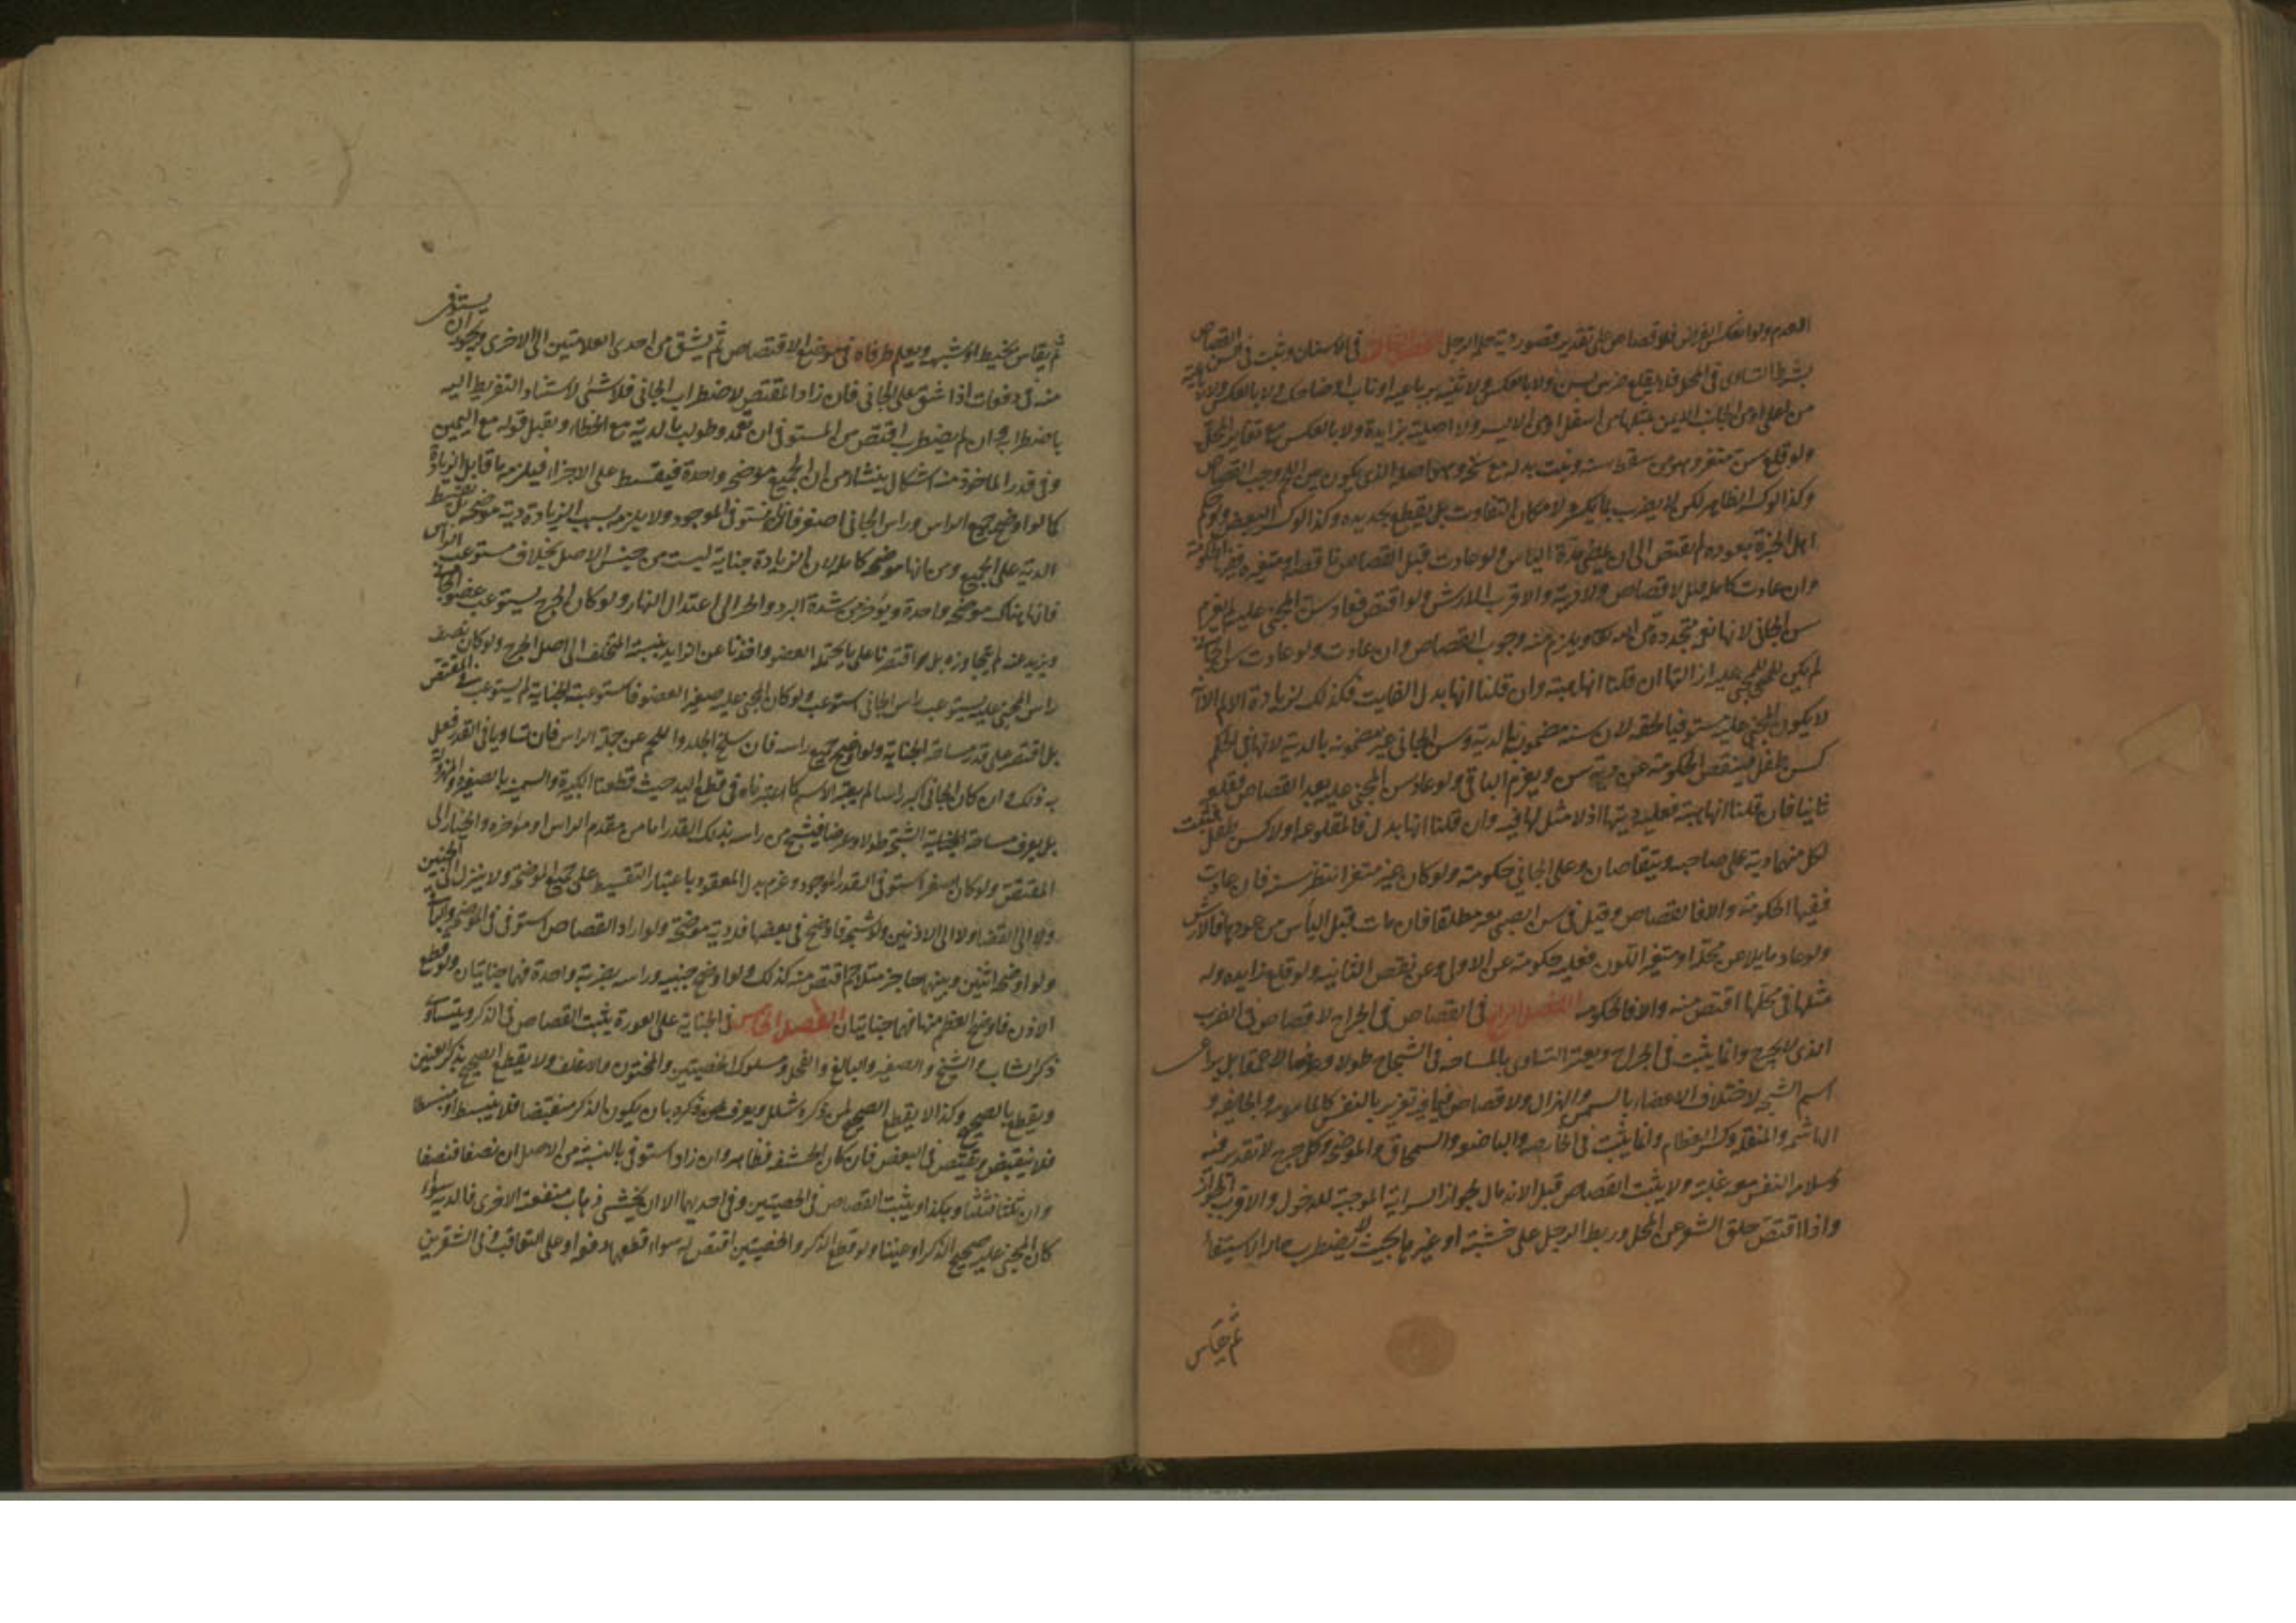 العدم ولو انعكس الفرض فلا قصاص على تقدير قصور دية حلمة الرجل الفصل الثالث في الاسنان ويثبت في السن القصاص
بشرط التساوى في المحل فلا يقلع ضرس بسن ولا بالعكس ولا ثنية برباعية او ناب او ضاحك ولا بالعكس ولا رباعية
من اعلى او من الجانب الايمن بمثلها من اسفل او من الايسر ولا اصلية بزايدة ولا بالعكس مع تغاير المحل
ولو قلع سن مثغر وهو من سقط سنه ونبت بدله مع سنخه وهو اصله الذى يكون بين اللثة وجب القصاص
وكذا لو كسر الظاهر لكن لا يضرب بما يكسر لامكان التفاوت بل يقطع بحديدة وكذا لو كسر البعض ولو حكم
اهل الخبرة بعوده لم يقتص الى ان يمضى مدة الياس ولو عادت قبل القصاص ناقصة او متغيرة ففيها الحكومة
وان عادت كاملة قيل لا قصاص ولا دية والاقرب الارش ولو اقتص فعادت سن المجنى عليه لم يغرم
سن الجانى لانها نعمة متجددة من الله تعالى ويلزم منه وجوب القصاص وان عادت ولو عادت سن الجانى
لم يكن للمجنى عليه ازالتها ان قلنا انها هبة وان قلنا انها بدل الفايت فكذلك لزيادة الالم الا انه
لا يكون المجنى عليه مستوفيا لحقه لان سنه مضمونة بالدية وسن الجانى غير مضمونة بالدية لانها في الحكم
كسن طفل فينقص الحكومة عن دية سن ويغرم الباقى ولو عاد سن المجنى عليه بعد القصاص فقلع
ثانيا فان قلنا انها هبة فعليه ديتها اذ لا مثل لها فيه وان قلنا انها بدل فالمقلوعة اولا كسن طفل فيثبت
لكل منهما دية على صاحبه ويتقاصان وعلى الجانى حكومة ولو كان غير مثغر انتظر سنه فان عادت
ففيها الحكومة والا فالقصاص وقيل في سن الصبى بعير مطلقا فان مات قبل اليأس من عودها فالارش
ولو عاد مايلا عن محله او متغير اللون فعليه حكومة عن الاول وعن نقص الثانية ولو قلع زايدة وله
مثلها في محلها اقتص منه والا فالحكومة الفصل الرابع في القصاص في الجراح لا قصاص في الضرب
الذى لا يجرح وانما يثبت في الجراح ويعتبر التساوى بالمساحة في الشجاج طولا وعرضا لا عمقا بل يراعى
اسم الشجة لاختلاف الاعضاء بالسمن والهزال ولا قصاص فيما فيه تغرير بالنفس كالمامومة والجايفة و
الهاشمة والمنقلة وكسر العظام وانما يثبت في الحارصة والباضعة والسمحاق والموضحة وكل جرح لا تغرير فيه
وسلامة النفس معه غالبة ولا يثبت القصاص قبل الاندمال لجواز السراية الموجبة للدخول والاقرب الجواز
واذا اقتص حلق الشعر عن المحل وربط الرجل على خشبة او غيرها بحيث لا يضطرب حالة الاستيفاء
ثم يقاس
ثم يقاس بخيط او شبهه ويعلم طرفاه في موضع الاقتصاص ثم يشق من احدى العلامتين الى الاخرى ويجوز ان يستوفى
منه في دفعات اذا شق على الجانى فان زاد المقتص لاضطراب الجانى فلا شئ لاستناد التفريط اليه
باضطرابه وان لم يضطرب اقتص من المستوفى ان تعمد وطولب بالدية مع الخطاء ويقبل قوله مع اليمين
وفي قدر الماخوذ منه اشكال ينشأ من ان الجميع موضحة واحدة فيقسط على الاجزاء فيلزمه ما قابل الزيادة
كما لو اوضح جميع الراس وراس الجانى اصغر فانا نستوفى الموجود ولا يلزمه بسبب الزيادة دية موضحة بل يقسط
الدية على الجميع ومن انها موضحة كاملة لان الزيادة جناية ليست من جنس الاصل بخلاف مستوعب الراس
فانها هناك موضحة واحدة ويؤخر من شدة البرد والحر الى اعتدال النهار ولو كان الجرح يستوعب عضو الجانى
ويزيد عنه لم يتجاوزه بل اقتصرنا على ما يحتمله العضو واخذنا عن الزايد بنسبة المتخلف الى اصل الجرح ولو كان نصف
راس المجنى عليه يستوعب راس الجانى استوعب ولو كان المجنى عليه صغير العضو فاستوعبته الجناية لم يستوعب في المقتص
بل اقتصر على قدر مساحة الجناية ولو اوضح جميع راسه فان سلخ الجلد واللحم عن جملة الراس فان تساويا في القدر فعل
به ذلك وان كان الجانى اكبر راسا لم يعتبر الاسم كما اعتبرناه في قطع اليد حيث قطعنا الكبيرة والسمينة بالصغيرة والمهزولة
بل يعرف مساحة الجناية الشجة طولا وعرضا فيشج من راسه بذلك القدر اما من مقدم الراس او مؤخره والخيار الى
المقتص ولو كان اصغر استوفى القدر الموجود وغرم بدل المفقود باعتبار التقسيط على جميع الموضحة ولا ينزل الى الجبين
ولا الى القفا ولا الى الاذنين ولو شجه فاوضح في بعضها فله دية موضحة ولو اراد القصاص استوفى في الموضحة والباقى
ولو اوضحه اثنتين وبينهما حاجز مثلا ثم اقتص منه كذلك ولو اوضح جبينه وراسه بضربة واحدة فهما جنايتان ولو قطع
الاذن فاوضح العظم منها فهما جنايتان الفصل الخامس في الجناية على العورة يثبت القصاص في الذكر ويتساوى
ذكر الشاب والشيخ والصغير والبالغ والفحل ومسلول الخصيتين والمختون والاغلف ولا يقطع الصحيح بذكر العنين
ويقطع بالصحيح وكذا لا يقطع الصحيح لمن ذكره شلل ويعرف ذكره بان يكون الذكر منقبضا فلا ينبسط او منبسطا
فلا ينقبض ويقتص في البعض فان كان الحشفة فظاهر وان زاد استوفى بالنسبة من الاصل ان نصفا فنصفا
وان ثلثا فثلثا وهكذا ويثبت القصاص في الخصيتين وفي احديهما الا ان يخشى ذهاب منفعة الاخرى فالدية سواء
كان المجنى عليه صحيح الذكر او عنينا ولو قطع الذكر والخصيتين اقتص له سواء قطعهما دفعة او على التعاقب وفي الشفرين